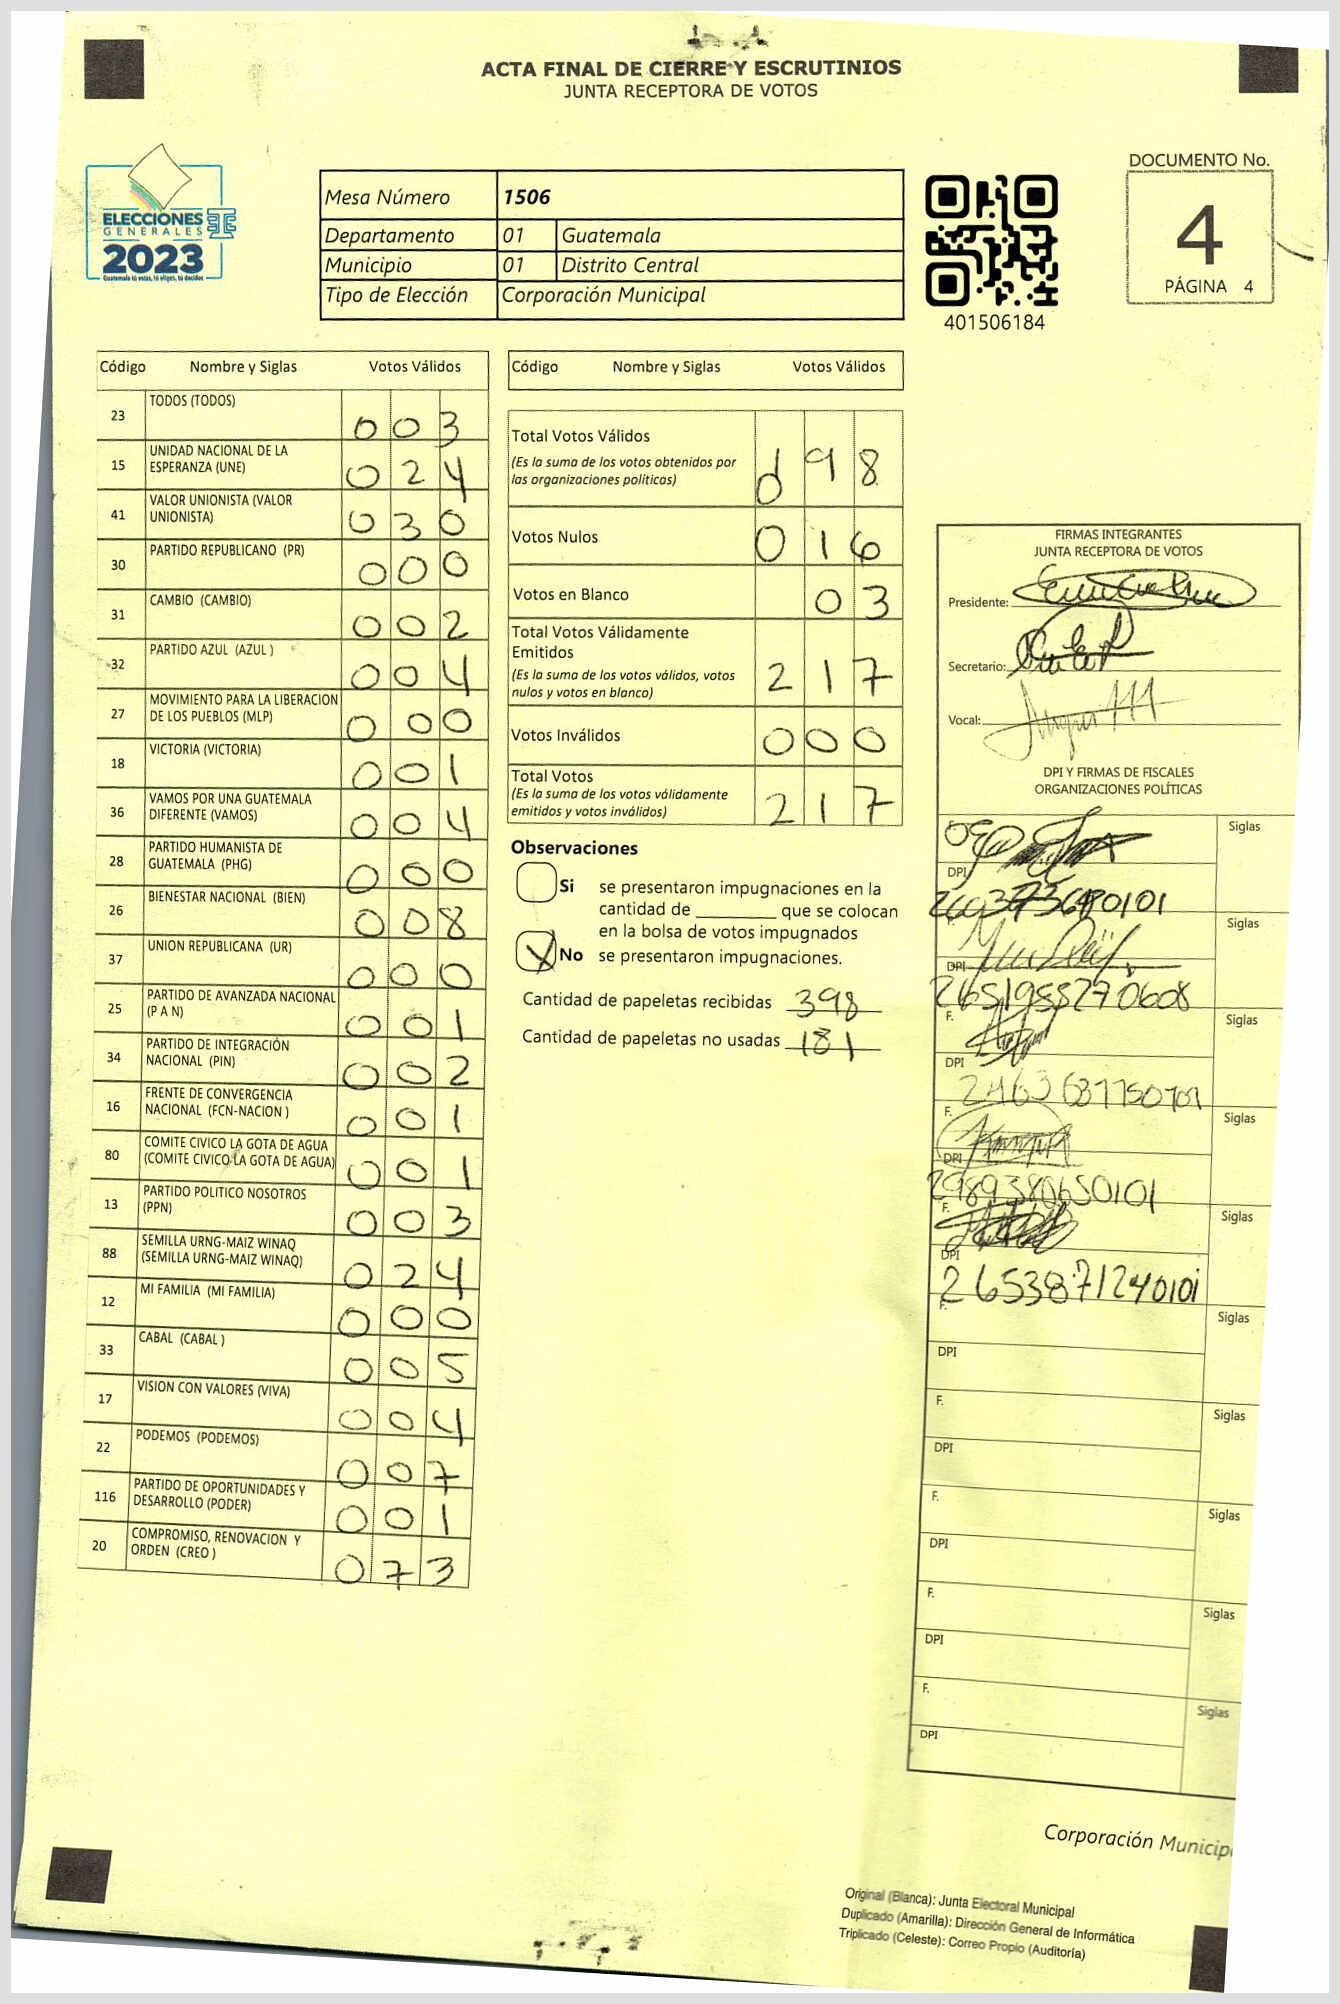 ACTA FINAL DE CIERRE Y ESCRUTINIOS
JUNTA RECEPTORA DE VOTOS
ELECCIONES
GENERALES
2023
Guatemala tú votas, tú eliges, tú decides
Mesa Número 1506
Departamento 01 Guatemala
Municipio 01 Distrito Central
Tipo de Elección Corporación Municipal
401506184
DOCUMENTO No.
4
PÁGINA 4
Código Nombre y Siglas Votos Válidos
23 TODOS (TODOS) 003
15 UNIDAD NACIONAL DE LA
ESPERANZA (UNE) 024
41 VALOR UNIONISTA (VALOR
UNIONISTA) 030
30 PARTIDO REPUBLICANO (PR) 000
31 CAMBIO (CAMBIO) 002
32 PARTIDO AZUL (AZUL ) 004
27 MOVIMIENTO PARA LA LIBERACION
DE LOS PUEBLOS (MLP) 000
18 VICTORIA (VICTORIA) 001
36 VAMOS POR UNA GUATEMALA
DIFERENTE (VAMOS) 004
28 PARTIDO HUMANISTA DE
GUATEMALA (PHG) 000
26 BIENESTAR NACIONAL (BIEN) 008
37 UNION REPUBLICANA (UR) 000
25 PARTIDO DE AVANZADA NACIONAL
(P A N) 001
34 PARTIDO DE INTEGRACIÓN
NACIONAL (PIN) 002
16 FRENTE DE CONVERGENCIA
NACIONAL (FCN-NACION ) 001
80 COMITE CIVICO LA GOTA DE AGUA
(COMITE CIVICO LA GOTA DE AGUA) 001
13 PARTIDO POLITICO NOSOTROS
(PPN) 003
88 SEMILLA URNG-MAIZ WINAQ
(SEMILLA URNG-MAIZ WINAQ) 024
12 MI FAMILIA (MI FAMILIA) 000
33 CABAL (CABAL ) 005
17 VISION CON VALORES (VIVA) 004
22 PODEMOS (PODEMOS) 007
116 PARTIDO DE OPORTUNIDADES Y
DESARROLLO (PODER) 001
20 COMPROMISO, RENOVACION Y
ORDEN (CREO ) 073
Código Nombre y Siglas Votos Válidos
Total Votos Válidos
(Es la suma de los votos obtenidos por
las organizaciones políticas) 98
Votos Nulos 016
Votos en Blanco 03
Total Votos Válidamente
Emitidos
(Es la suma de los votos válidos, votos
nulos y votos en blanco) 217
Votos Inválidos 000
Total Votos
(Es la suma de los votos válidamente
emitidos y votos inválidos) 217
Observaciones
Si se presentaron impugnaciones en la
cantidad de ________ que se colocan
en la bolsa de votos impugnados
X No se presentaron impugnaciones.
Cantidad de papeletas recibidas 398
Cantidad de papeletas no usadas 181
FIRMAS INTEGRANTES
JUNTA RECEPTORA DE VOTOS
Presidente:
Secretario:
Vocal:
DPI Y FIRMAS DE FISCALES
ORGANIZACIONES POLÍTICAS
F. Siglas
DPI
F. Siglas
DPI 2651955270608
F. Siglas
DPI
F. Siglas
DPI 2989380650101
F. Siglas
DPI 2653871240101
F. Siglas
DPI
F. Siglas
DPI
F. Siglas
DPI
F. Siglas
DPI
F. Siglas
DPI
Corporación Municip
Original (Blanca): Junta Electoral Municipal
Duplicado (Amarilla): Dirección General de Informática
Triplicado (Celeste): Correo Propio (Auditoría)